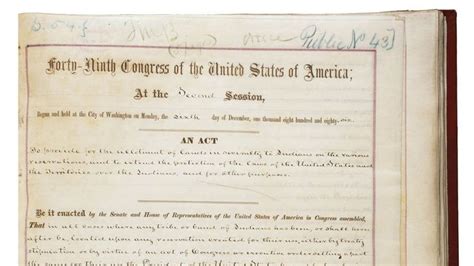 Public No 43
Forty-Ninth Congress of the United States of America;
At the Second Session,
Begun and held at the City of Washington on Monday, the sixth day of December, one thousand eight hundred and eighty-six.
AN ACT
To provide for the allotment of lands in severalty to Indians on the various
reservations, and to extend the protection of the laws of the United States and
the Territories over the Indians, and for other purposes.
Be it enacted by the Senate and House of Representatives of the United States of America in Congress assembled,
That in all cases where any tribe or band of Indians has been, or shall here-
after be, located upon any reservation created for their use, either by treaty
stipulation or by virtue of an act of Congress or executive order setting apart
the same for their use, the President of the United States